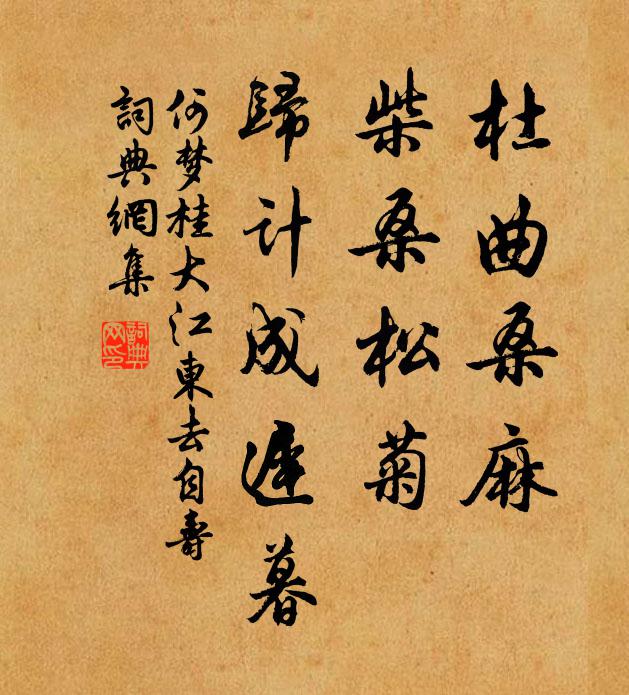 杜曲桑麻
柴桑松菊
歸计成遲暮
何梦桂大江東去自壽
詞典網集
詞典網印